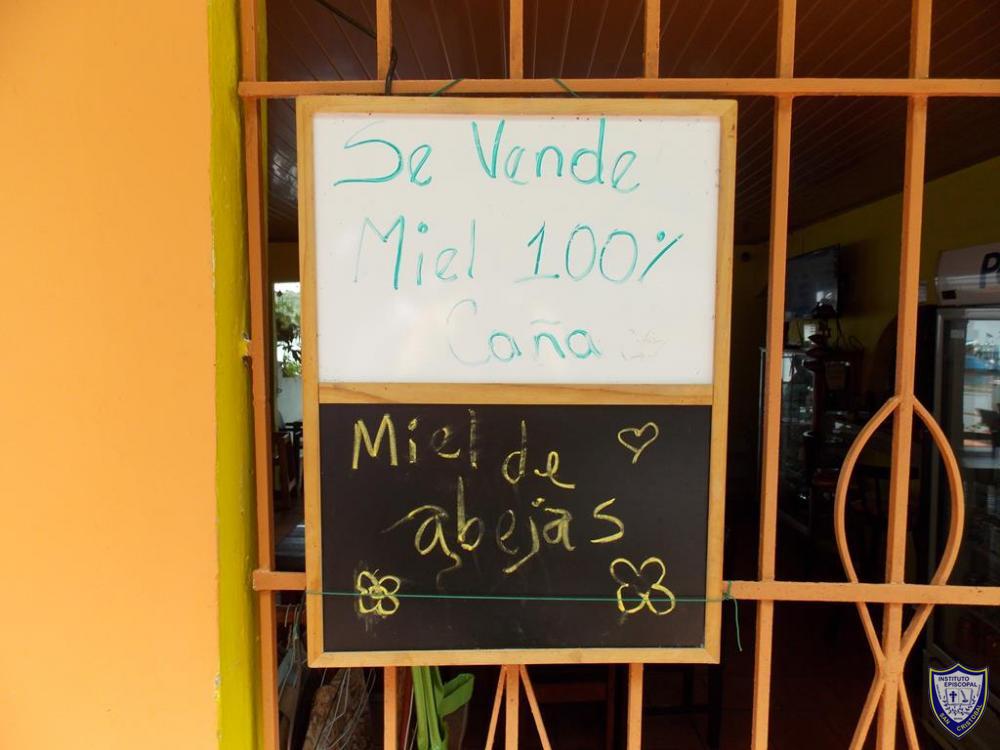 Se Vende
Miel 100%
Caña
Miel de
abejas
P
INSTITUTO
EPISCOPAL
SAN CRISTOBAL